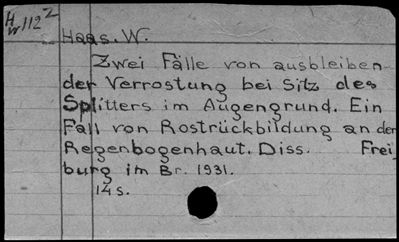 H
W 112 2
Haas. W.
Zwei Fälle von ausbleiben-
der Verrostung bei Sitz des
Splitters im Augengrund. Ein
Fall von Rostrückbildung an der
Regenbogenhaut. Diss. Frei-
burg im Br. 1931.
14 s.